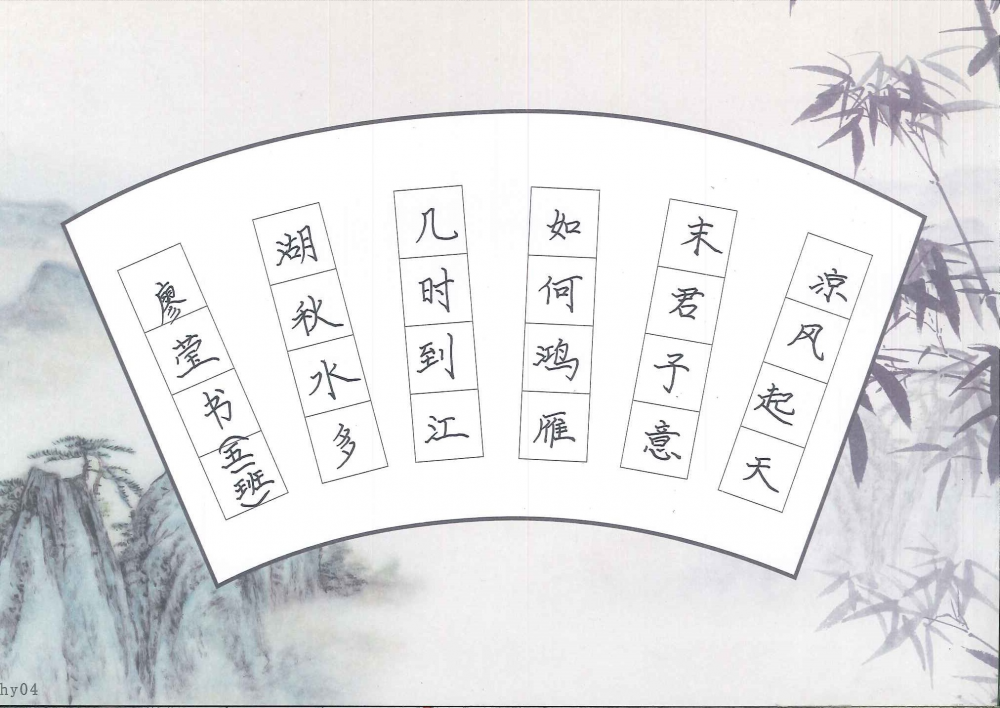 凉风起天
末君子意
如何鸿雁
几时到江
湖秋水多
廖莹书(五班)
hy04